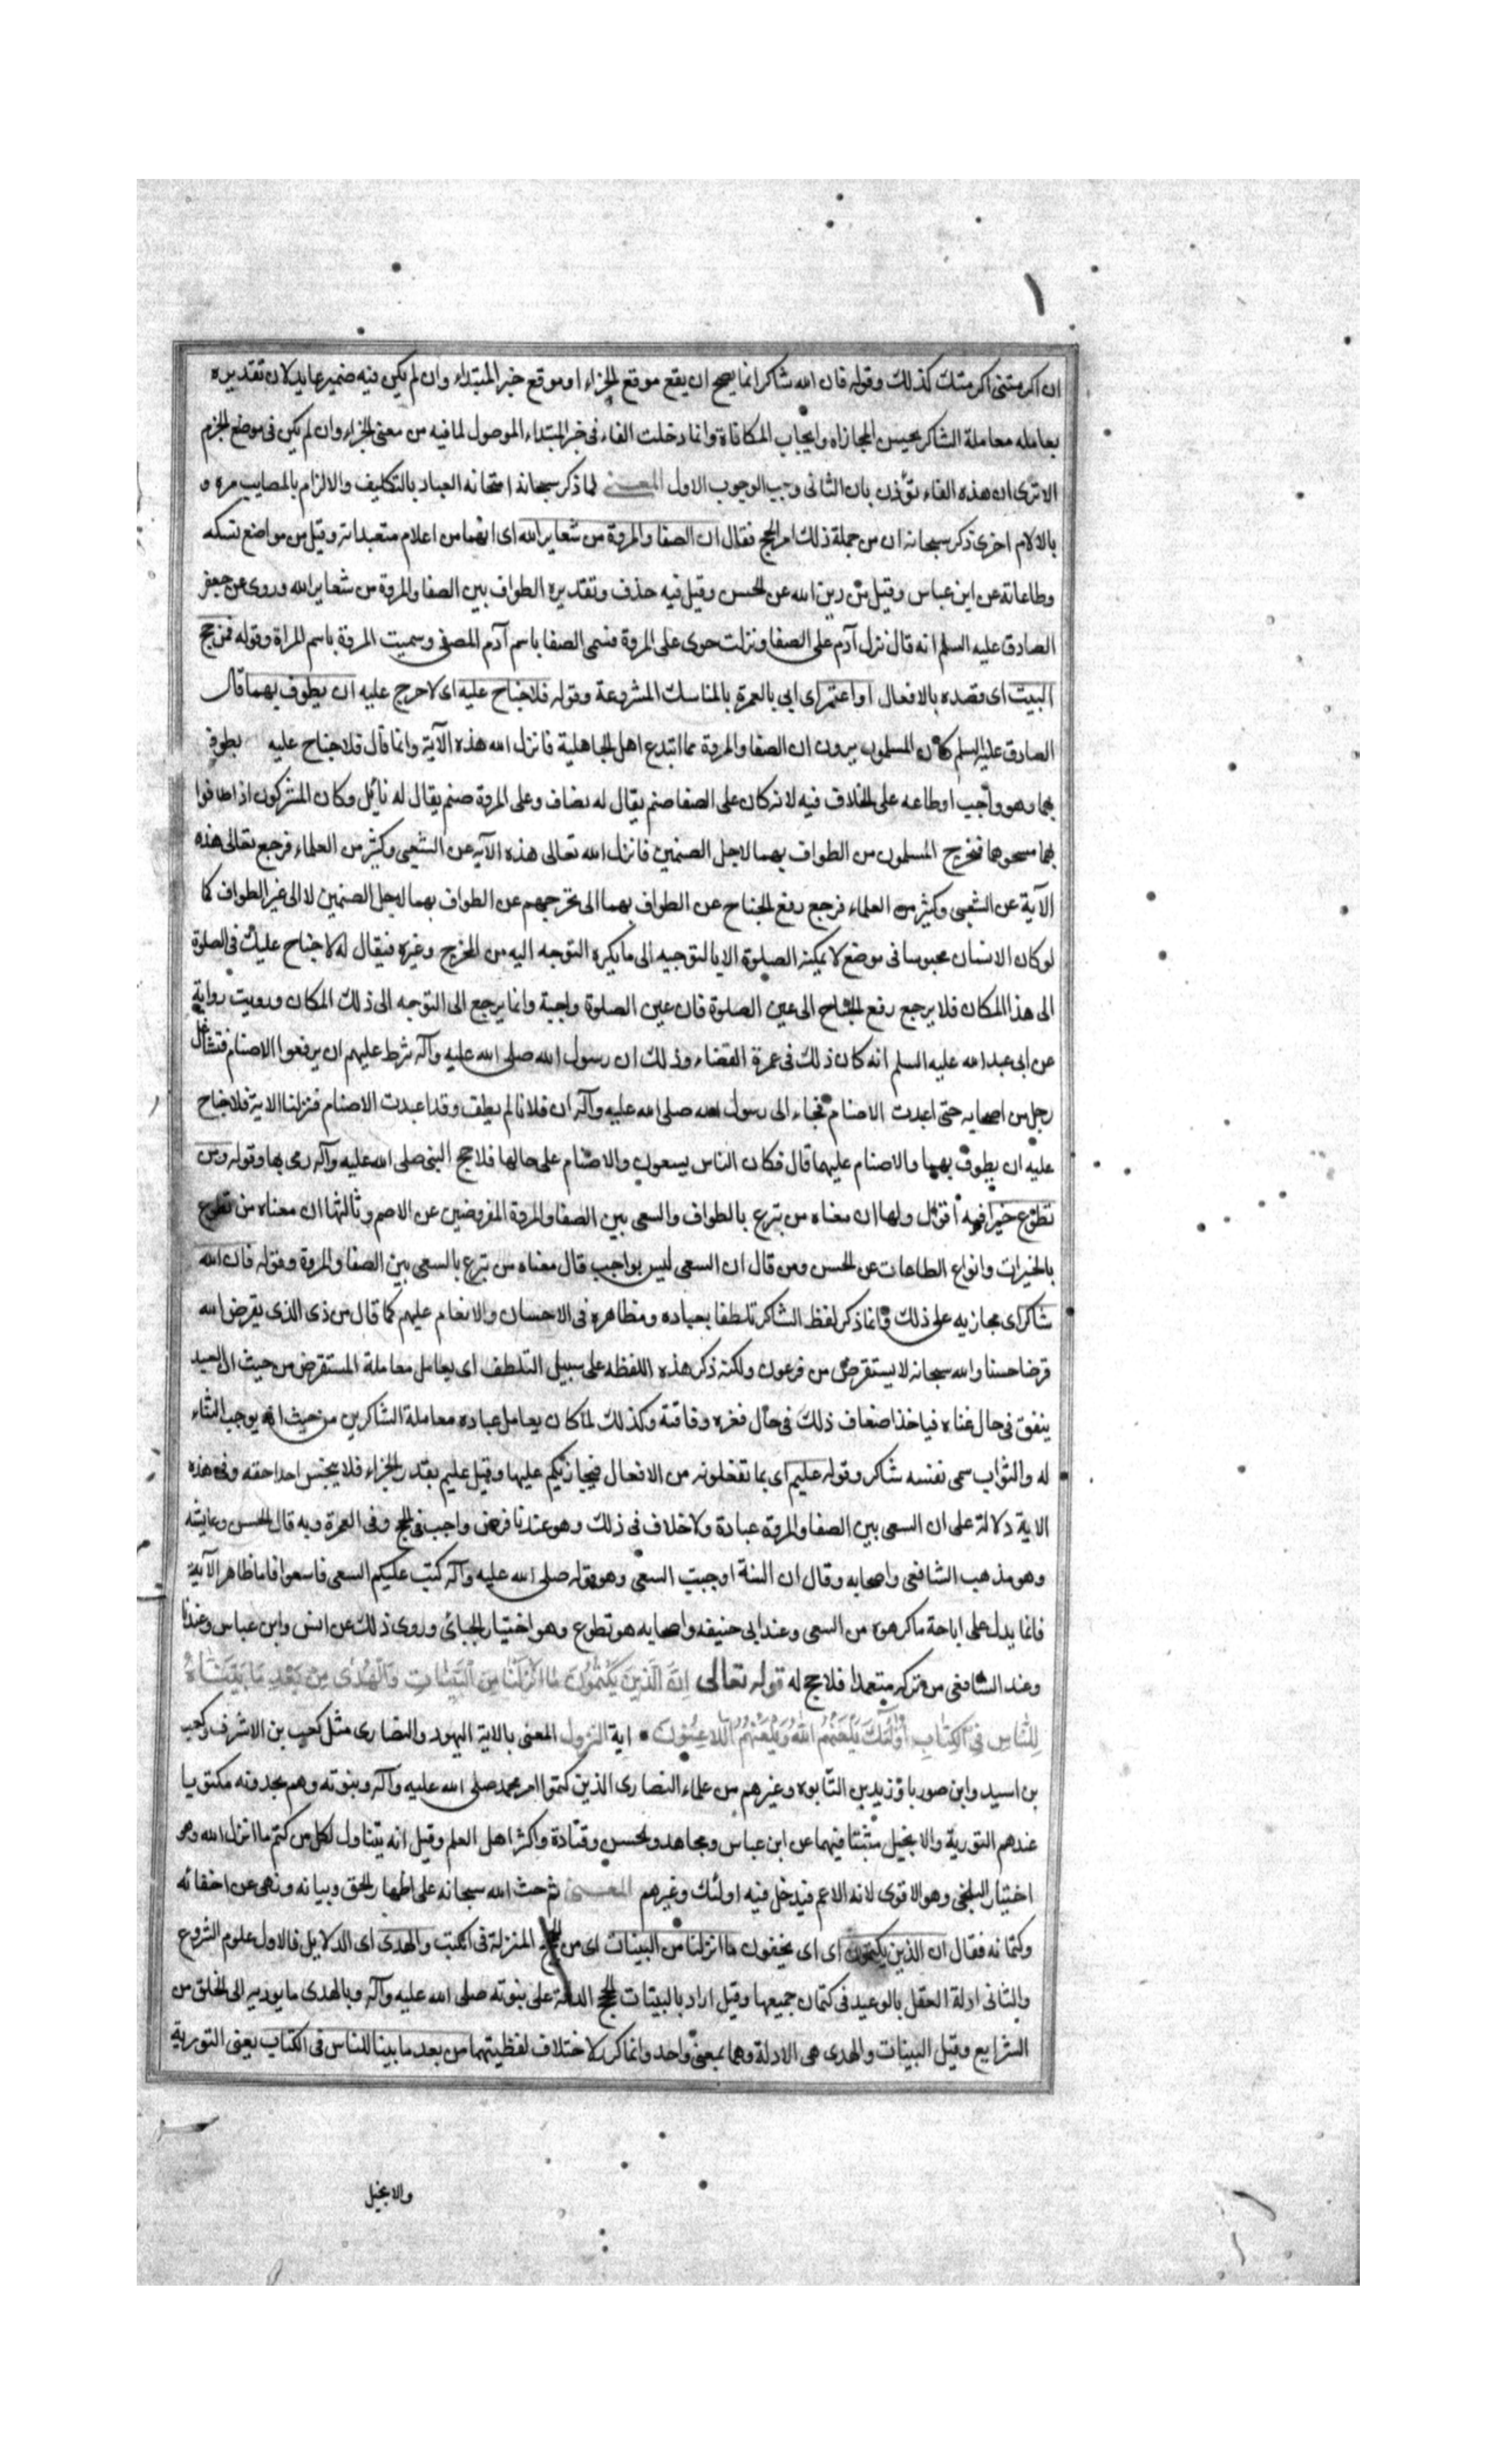 ان اكرمتنى اكرمتك كذلك وقوله فان الله شاكر انما يصح ان يقع موقع الجزاء او موقع خبر المبتداء وان لم يكن فيه ضمير عايد لان تقديره
يعامله معاملة الشاكر بحسن المجازاه وايجاب المكافاة وانما دخلت الفاء فى خبر المبتداء الموصول لما فيه من معنى الجزاء وان لم يكن فى موضع الجزم
الا ترى ان هذه الفاء تؤذن بان الثانى وجب لوجوب الاول المعنى لما ذكر سبحانه امتحانه العباد بالتكليف والالزام بالمصايب مره و
بالالام اخرى ذكر سبحانه ان من جملة ذلك امر الحج فقال ان الصفا والمروة من شعاير الله اى انهما من اعلام متعبداته وقيل من مواضع نسكه
وطاعاته عن ابن عباس وقيل من دين الله عن الحسن وقيل فيه حذف وتقديره الطواف بين الصفا والمروة من شعاير الله وروى عن جعفر
الصادق عليه السلم انه قال نزل آدم على الصفا ونزلت حوى على المروة فسمى الصفا باسم آدم المصفى وسميت المروة باسم المراة وقوله فمن حج
البيت اى قصده بالافعال او اعتمر اى اتى بالعمرة بالمناسك المشروعة وقوله فلا جناح عليه اى لا حرج عليه ان يطوف بهما قال
الصادق عليه السلم كان المسلمون يرون ان الصفا والمروة مما ابتدع اهل الجاهلية فانزل الله هذه الآية وانما قال فلا جناح عليه يطوف
بهما وهو واجب او طاعه على الخلاف فيه لانه كان على الصفا صنم يقال له نضاف وعلى المروة صنم يقال له نائل وكان المشركون اذا طافوا
بهما مسحوهما فتحرج المسلمون من الطواف بهما لاجل الصنمين فانزل الله تعالى هذه الآيه عن الشعبى وكثير من العلماء فرجع تعالى هذه
الآية عن الشعبى وكثير من العلماء فرجع رفع الجناح عن الطواف بهما الى تحرجهم عن الطواف بهما لاجل الصنمين لا الى غير الطواف كما
لو كان الانسان محبوسا فى موضع لا يمكنه الصلوة الا بالتوجيه الى ما يكره التوجه اليه من المخرج وغيره فيقال له لا جناح عليك فى الصلوة
الى هذا المكان فلا يرجع رفع الجناح الى عين الصلوة فان عين الصلوة واجبة وانما يرجع الى التوجه الى ذلك المكان ورويت رواية
عن ابى عبد الله عليه السلم انه كان ذلك فى عمرة القضاء وذلك ان رسول الله صلى الله عليه وآله شرط عليهم ان يرفعوا الاصنام فتشاغل
رجل من اصحابه حتى اعيدت الاصنام فجاء الى رسول الله صلى الله عليه وآله ان فلانا لم يطف وقد اعيدت الاصنام فنزلت الاية فلا جناح
عليه ان يطوف بهما والاصنام عليهما قال فكان الناس يسعون والاصنام على حالها فلا حج النبى صلى الله عليه وآله رمى بها وقوله ومن
تطوع خيرا فيه اقوال اولها ان معناه من تبرع بالطواف والسعى بين الصفا والمروة المفروضين عن الاصم وثالثها ان معناه من تطوع
بالخيرات وانواع الطاعات عن الحسن ومن قال ان السعى ليس بواجب قال معناه من تبرع بالسعى بين الصفا والمروة وقوله فان الله
شاكر اى مجازيه على ذلك وانما ذكر لفظ الشاكر تلطفا بعباده ومظاهره فى الاحسان والانعام عليهم كما قال من ذى الذى يقرض الله
قرضا حسنا والله سبحانه لا يستقرض من فرعون ولكنه ذكر هذه اللفظه على سبيل التلطف اى يعامل معاملة المستقرض من حيث ان العبد
ينفق فى حال غناه فياخذ اضعاف ذلك فى حال فقره وفاقته وكذلك لما كان يعامل عباده معاملة الشاكرين من حيث انه يوجب الثناء
له والثواب سمى نفسه شاكر وقوله عليم اى بما تفعلونه من الافعال فيجازيكم عليها وقيل عليم بقدر الجزاء فلا يبخس احدا حقه وفى هذه
الاية دلالة على ان السعى بين الصفا والمروة عبادة ولا خلاف فى ذلك وهو عندنا فرض واجب فى الحج وفى العمرة وبه قال الحسن وعايشه
وهو مذهب الشافعى واصحابه وقال ان السنة اوجبت السعى وهو قوله صلى الله عليه وآله كتب عليكم السعى فاسعوا فاما ظاهر الآية
فانما يدل على اباحة ما كرهوه من السعى وعند ابى حنيفه واصحابه هو تطوع وهو اختيار الجبائى وروى ذلك عن انس وابن عباس وعندنا
وعند الشافعى من تركه متعمدا فلا حج له قوله تعالى ان الذين يكتمون ما انزلنا من البينات والهدى من بعد ما بيناه
للناس فى الكتاب اولئك يلعنهم الله ويلعنهم اللاعنون اية النزول المعنى بالاية اليهود والنصارى مثل كعب بن الاشرف وكعب
بن اسيد وابن صوريا وزيد بن التابوه وغيرهم من علماء النصارى الذين كتموا امر محمد صلى الله عليه وآله ونبوته وهم يجدونه مكتوبا
عندهم التورية والانجيل مثبتا فيهما عن ابن عباس ومجاهد والحسن وقتادة واكثر اهل العلم وقيل انه يتناول لكل من كتم ما انزل الله وهو
اختيار البلخى وهو الاقوى لانه الاعم فيدخل فيه اولئك وغيرهم المعنى ثم حث الله سبحانه على اظهار الحق وبيانه ونهى عن اخفائه
وكتمانه فقال ان الذين يكتمون اى اى يخفون ما انزلنا من البينات اى من الحجج المنزلة فى الكتب والهدى اى الدلايل فالاول علوم الشرع
والثانى ادلة العقل بالوعيد فى كتمان جميعها وقيل اراد بالبينات الحجج الدالة على نبوته صلى الله عليه وآله وبالهدى ما يوديه الى الخلق من
الشرايع وقيل البينات والهدى هى الادلة وهما بمعنى واحد وانما كرر لاختلاف لفظيتهما من بعد ما بينا للناس فى الكتاب يعنى التورية
والانجيل